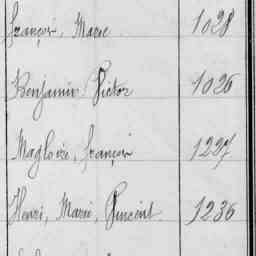 françois, Marie 1028
Benjamin Victor 1026
Magloire, françois 1227
Henri, Marie, Vincent 1236